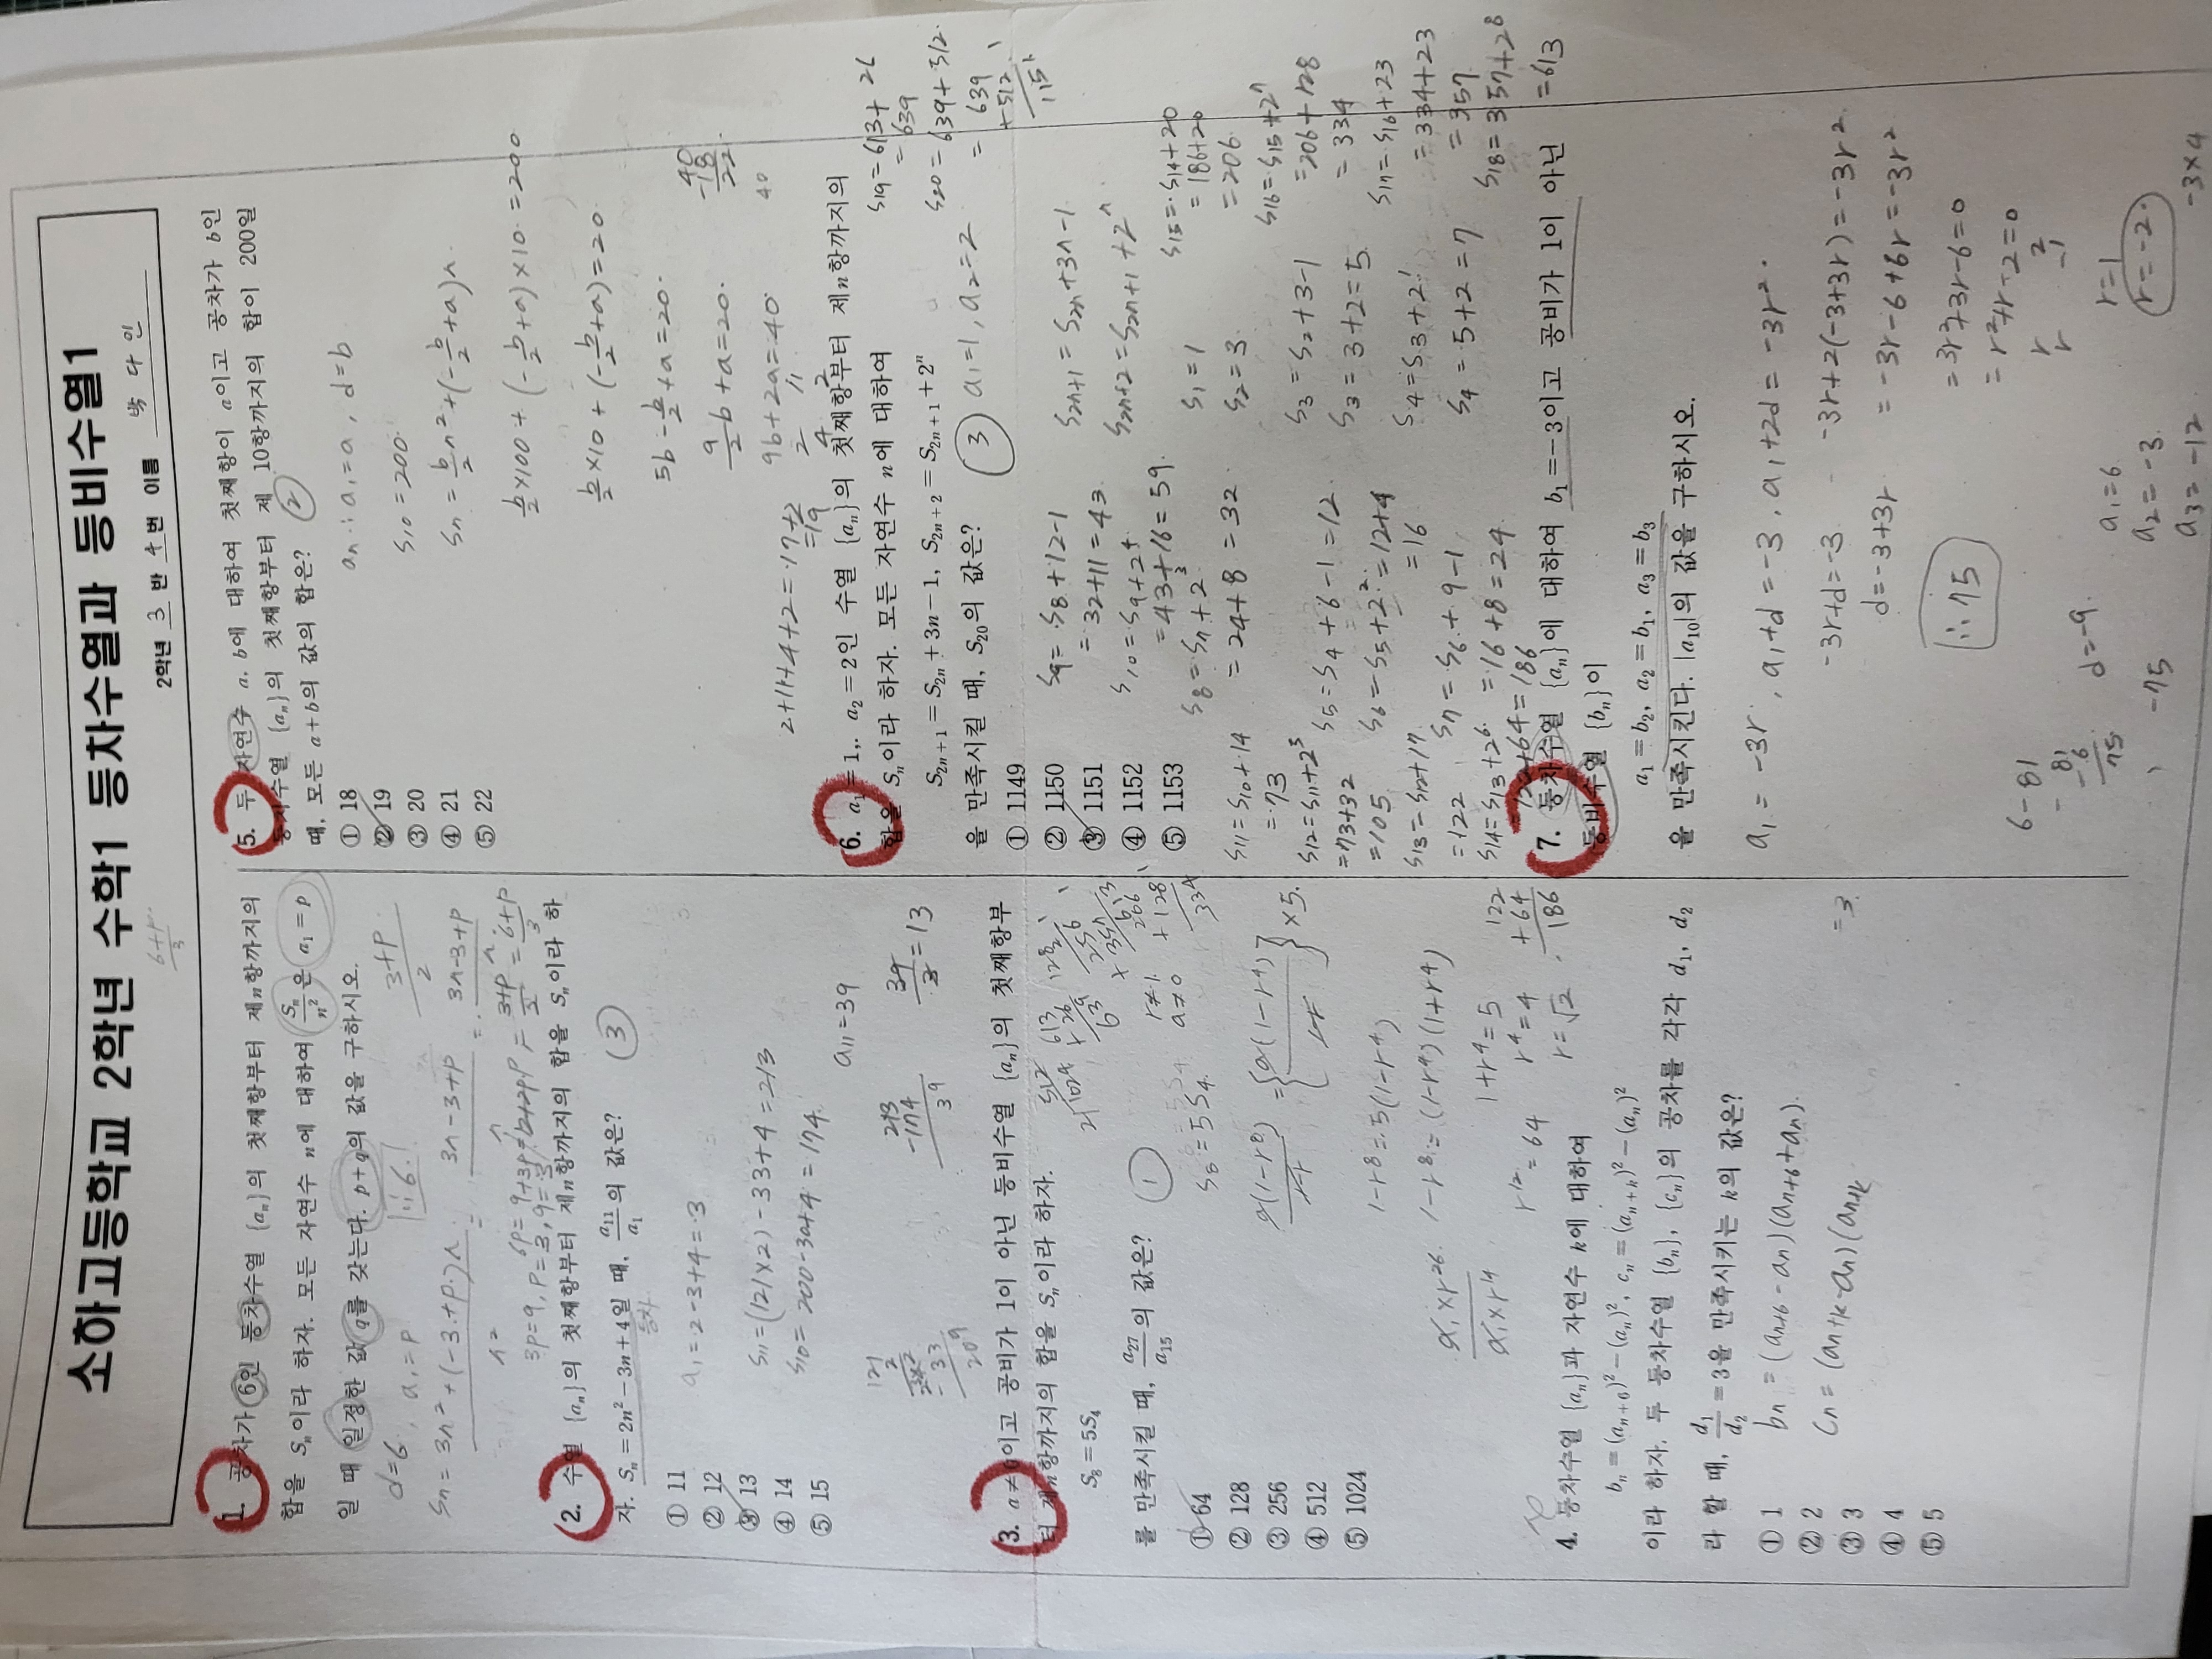 소하고등학교 2학년 수학1 등차수열과 등비수열1
2학년 3 반 4 번 이름 박 다 인
6+p
3
1. 공차가 6인 등차수열 {aₙ}의 첫째항부터 제n항까지의
합을 Sₙ이라 하자. 모든 자연수 n에 대하여 Sₙ/n²은 a₁=p
일 때 일정한 값 q를 갖는다. p+q의 값을 구하시오.
d=6, a₁=p
∴6.
3+p/2
Sₙ= 3n²+(-3+p)n/n² = 3n-3+p/n = 3n-3+p/n
p = 3+p/2 = 6+p/3
6p=9+3p=12+2p
3p=9, p=3, q=3
2. 수열 {aₙ}의 첫째항부터 제n항까지의 합을 Sₙ이라 하
자. Sₙ=2n²-3n+4일 때, a₁₁/a₁의 값은?
③
등차
① 11
② 12
③ 13
④ 14
⑤ 15
a₁=2-3+4=3
S₁₁=(121×2)-33+4=213
S₁₀=200-30+4=174
a₁₁=39
121
2
242
-33
209
213
-174
39
39/3=13
3. a≠0이고 공비가 1이 아닌 등비수열 {aₙ}의 첫째항부
터 제n항까지의 합을 Sₙ이라 하자.
S₈=5S₄
를 만족시킬 때, a₂₇/a₁₅의 값은?
①
① 64
② 128
③ 256
④ 512
⑤ 1024
512
2)1024
613
+26
639
128
256
+357
613
206
+128
334
r≠1
a≠0
S₈=5S₄
a(1-r⁸)/1-r = {a(1-r⁴)/1-r}×5.
1-r⁸=5(1-r⁴)
1-r⁸=(1-r⁴)(1+r⁴)
a₁×r²⁶/a₁×r¹⁴
1+r⁴=5
r¹²=64
r⁴=4
r=√2
122
+64
186
4. 등차수열 {aₙ}과 자연수 k에 대하여
bₙ=(aₙ₊₆)²-(aₙ)², cₙ=(aₙ₊ₖ)²-(aₙ)²
이라 하자. 두 등차수열 {bₙ}, {cₙ}의 공차를 각각 d₁, d₂
라 할 때, d₁/d₂=3을 만족시키는 k의 값은?
① 1
② 2
③ 3
④ 4
⑤ 5
bₙ=(aₙ₊₆-aₙ)(aₙ₊₆+aₙ).
cₙ=(aₙ₊ₖ-aₙ)(aₙ₊ₖ
=3.
5. 두 자연수 a, b에 대하여 첫째항이 a이고 공차가 b인
등차수열 {aₙ}의 첫째항부터 제 10항까지의 합이 200일
때, 모든 a+b의 값의 합은?
②
① 18
② 19
③ 20
④ 21
⑤ 22
aₙ : a₁=a, d=b
S₁₀=200
Sₙ=b/2n²+(-b/2+a)n
b/2×100+(-b/2+a)×10=200
b/2×10+(-b/2+a)=20
5b-b/2+a=20
9/2b+a=20
9b+2a=40
2 11
4 2
40
-18
22
40
2+11+4+2=17+2
=19
6. a₁=1,. a₂=2인 수열 {aₙ}의 첫째항부터 제n항까지의
합을 Sₙ이라 하자. 모든 자연수 n에 대하여
S₂ₙ₊₁=S₂ₙ+3n-1, S₂ₙ₊₂=S₂ₙ₊₁+2ⁿ
을 만족시킬 때, S₂₀의 값은?
③
a₁=1, a₂=2
① 1149
② 1150
③ 1151
④ 1152
⑤ 1153
S₁₉=613+26
=639
S₂₀=639+512
=639
+512
1151
S₉=S₈+12-1
=32+11=43
S₁₀=S₉+2⁴
=43+16=59
S₈=S₇+2³
=24+8=32
S₂ₙ₊₁=S₂ₙ+3n-1
S₂ₙ₊₂=S₂ₙ₊₁+2ⁿ
S₁=1
S₂=3
S₃=S₂+3-1
S₃=3+2=5
S₄=S₃+2¹
S₄=5+2=7
S₅=S₄+6-1=12
S₆=S₅+2²=12+4
=16
S₇=S₆+9-1
=16+8=24
S₁₁=S₁₀+14
=73
S₁₂=S₁₁+2⁵
=73+32
=105
S₁₃=S₁₂+17
=122
S₁₄=S₁₃+2⁶
=122+64=186
S₁₅=S₁₄+20
=186+20
=206
S₁₆=S₁₅+2⁷
=206+128
=334
S₁₇=S₁₆+23
=334+23
=357
S₁₈=357+2⁸
=613
7. 등차수열 {aₙ}에 대하여 b₁=-3이고 공비가 1이 아닌
등비수열 {bₙ}이
a₁=b₂, a₂=b₁, a₃=b₃
을 만족시킨다. |a₁₀|의 값을 구하시오.
a₁=-3r, a₁+d=-3, a₁+2d=-3r²
-3r+d=-3
d=-3+3r
-3r+2(-3+3r)=-3r²
=-3r-6+6r=-3r²
=3r²+3r-6=0
=r²+r-2=0
r 2
r -1
∴75
6-81
81
-6
75
d=-9
-75
a₁=6
a₂=-3
a₃=-12
r=1
r=-2
-3×4